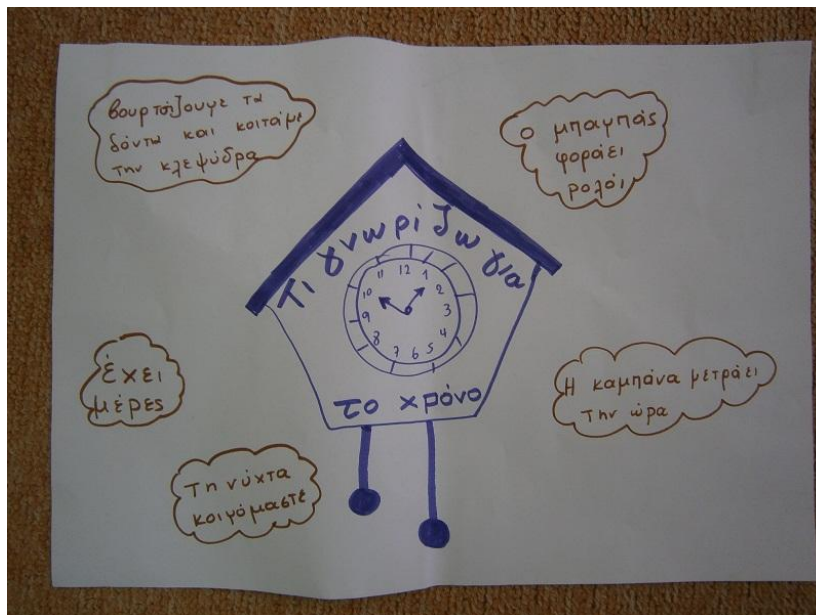 βουρτσίζουμε τα
δόντα και κοιτάμε
την κλεψύδρα
Ο μπαμπάς
φοράει
ρολόι
Τι γνωρίζω για
12
1
2
3
4
5
6
7
8
9
10
11
το χρόνο
έχει
μέρες
Η καμπάνα μετράει
την ώρα
Τη νύχτα
κοιμόμαστε